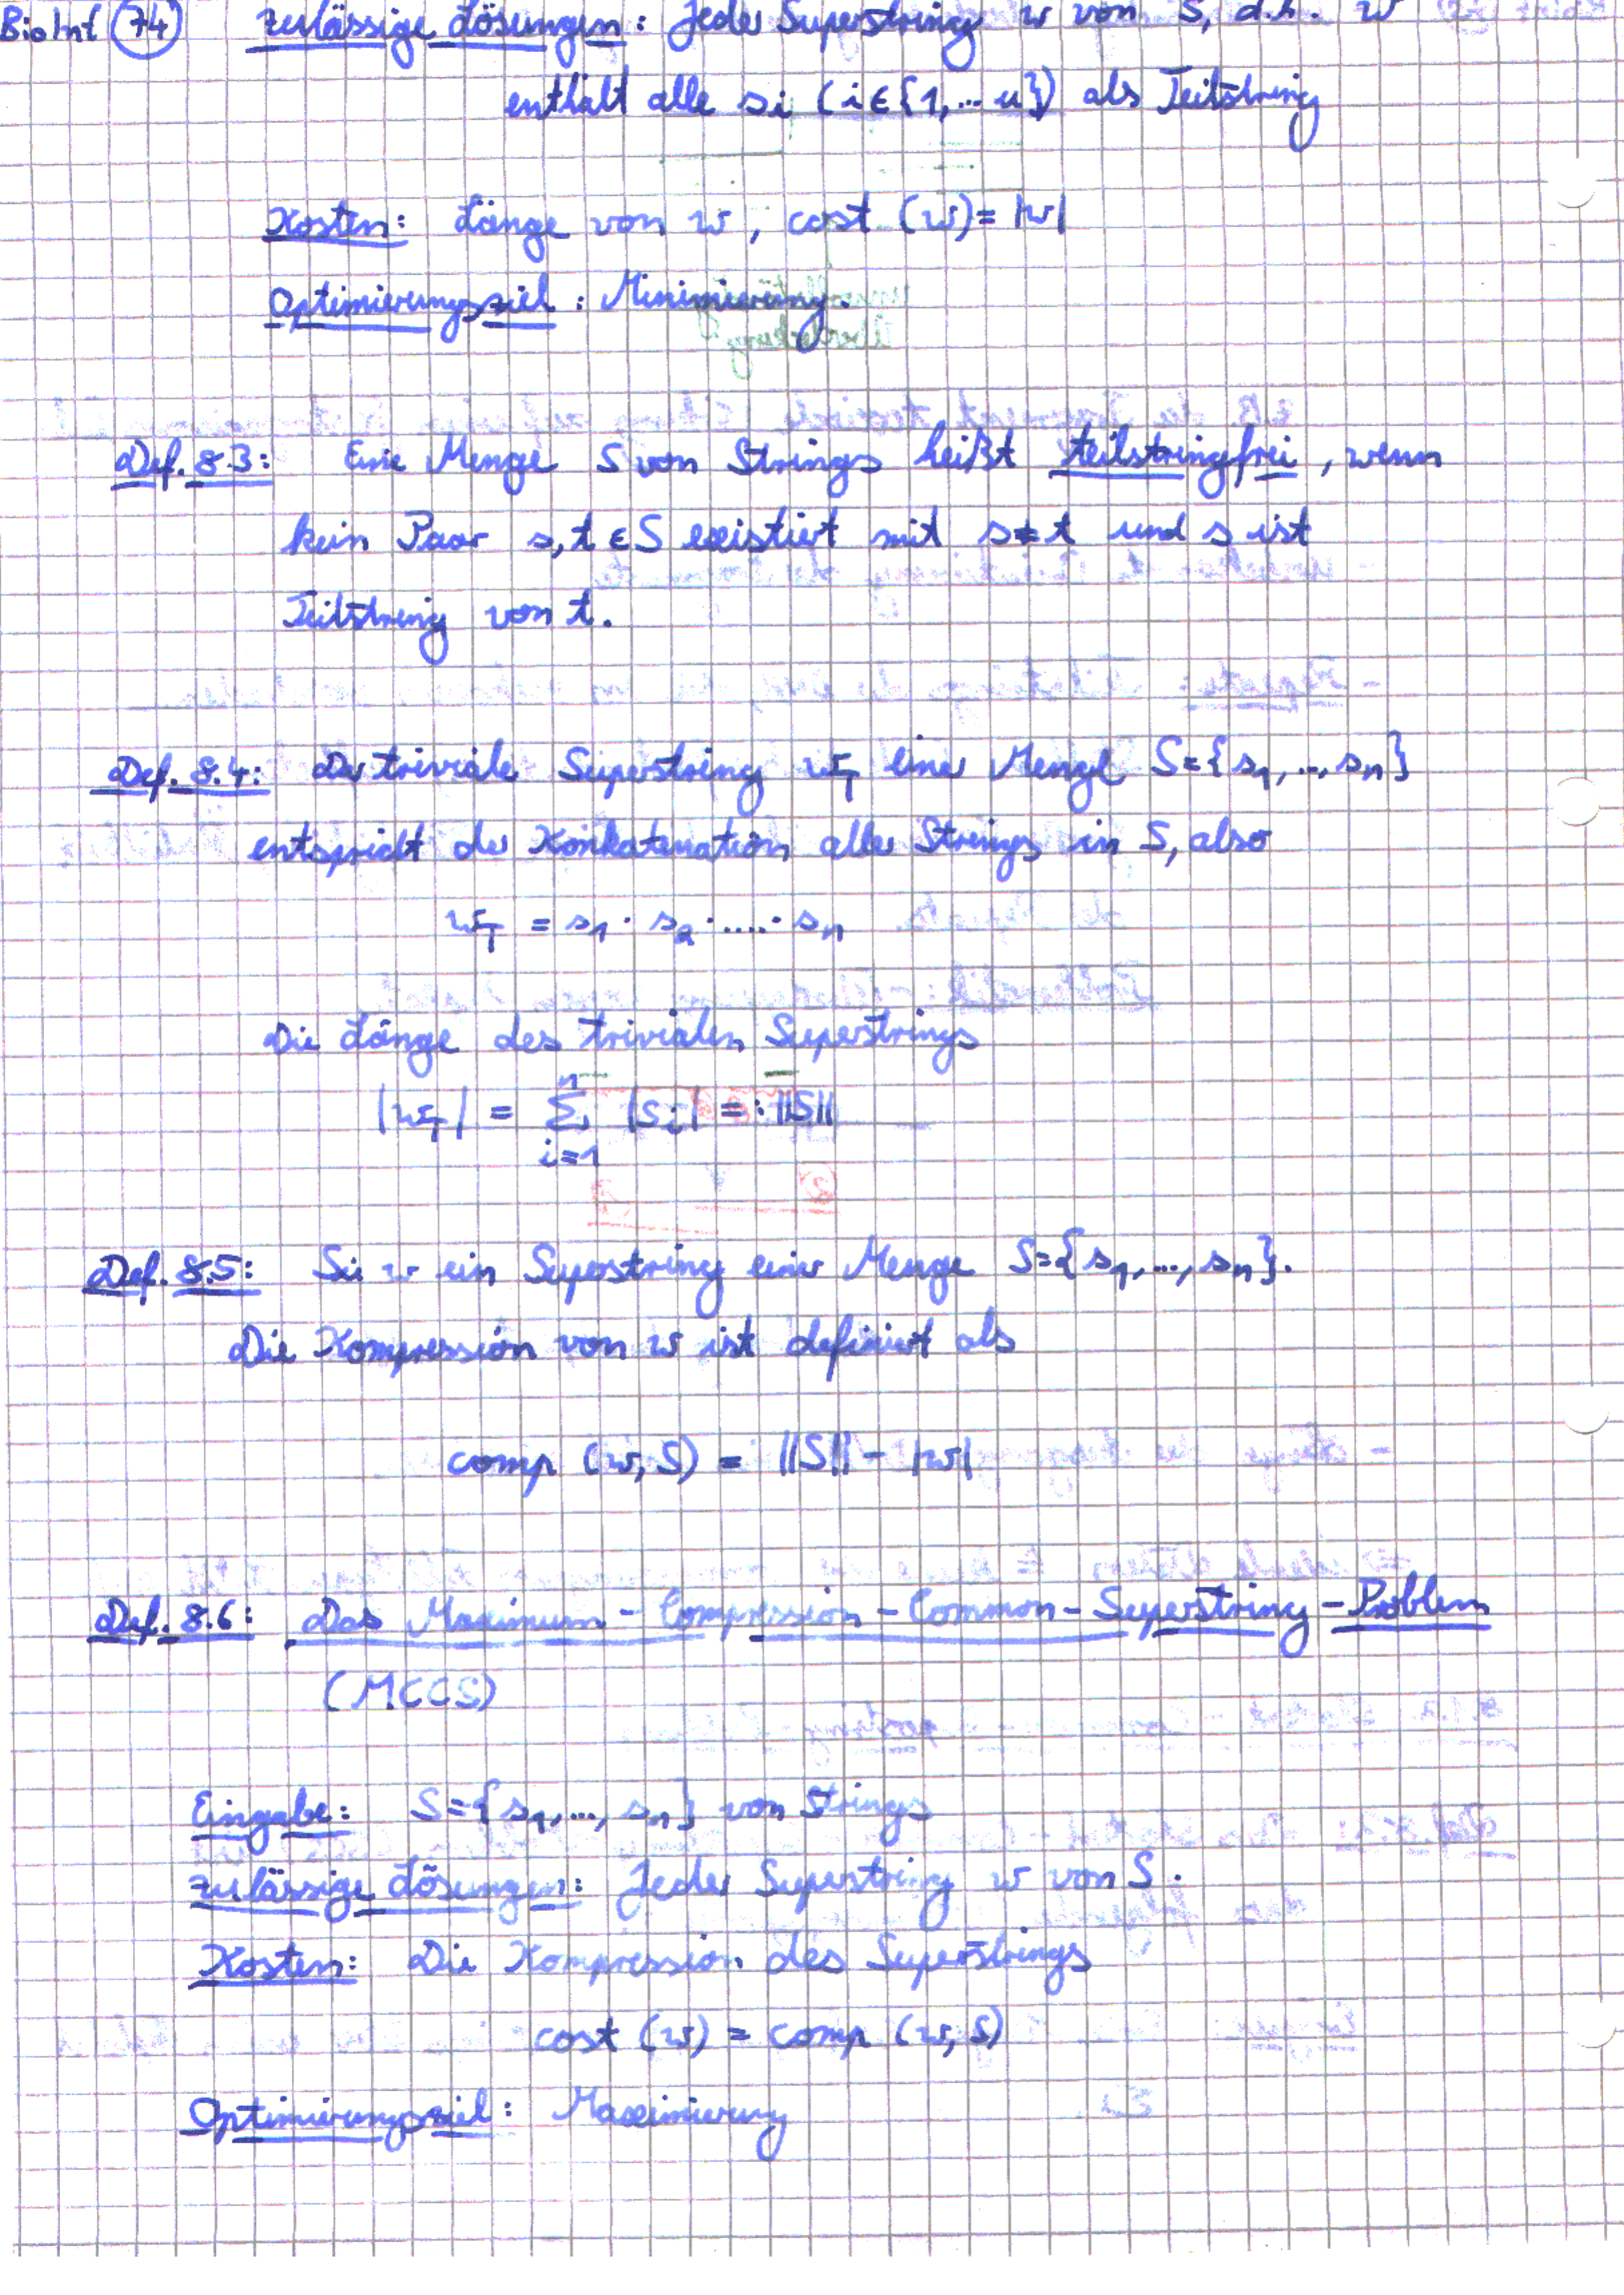 BioInf 74 zulässige Lösungen: Jeder Superstring w von S, d.h. w
enthält alle si (i∈{1,...n}) als Teilstring
Kosten: Länge von w, cost (w) = |w|
Optimierungsziel: Minimierung.
Def. 8.3: Eine Menge S von Strings heißt teilstringfrei, wenn
kein Paar s,t ∈ S existiert mit s≠t und s ist
Teilstring von t.
Def. 8.4: Der triviale Superstring w_T einer Menge S={s_1,..,s_n}
entspricht der Konkatenation aller Strings in S, also
w_T = s_1 · s_2 · .... · s_n
Die Länge des trivialen Superstrings
|w_T| = ∑_{i=1}^{n} |s_i| =: ||S||
Def. 8.5: Sei w ein Superstring einer Menge S={s_1,..., s_n}.
Die Kompression von w ist definiert als
comp (w,S) = ||S|| - |w|
Def. 8.6: Das Maximum-Compression-Common-Superstring-Problem
(MCCS)
Eingabe: S={s_1,..., s_n} von Strings
zulässige Lösungen: Jeder Superstring w von S.
Kosten: Die Kompression des Superstrings
cost (w) = comp (w,S)
Optimierungsziel: Maximierung